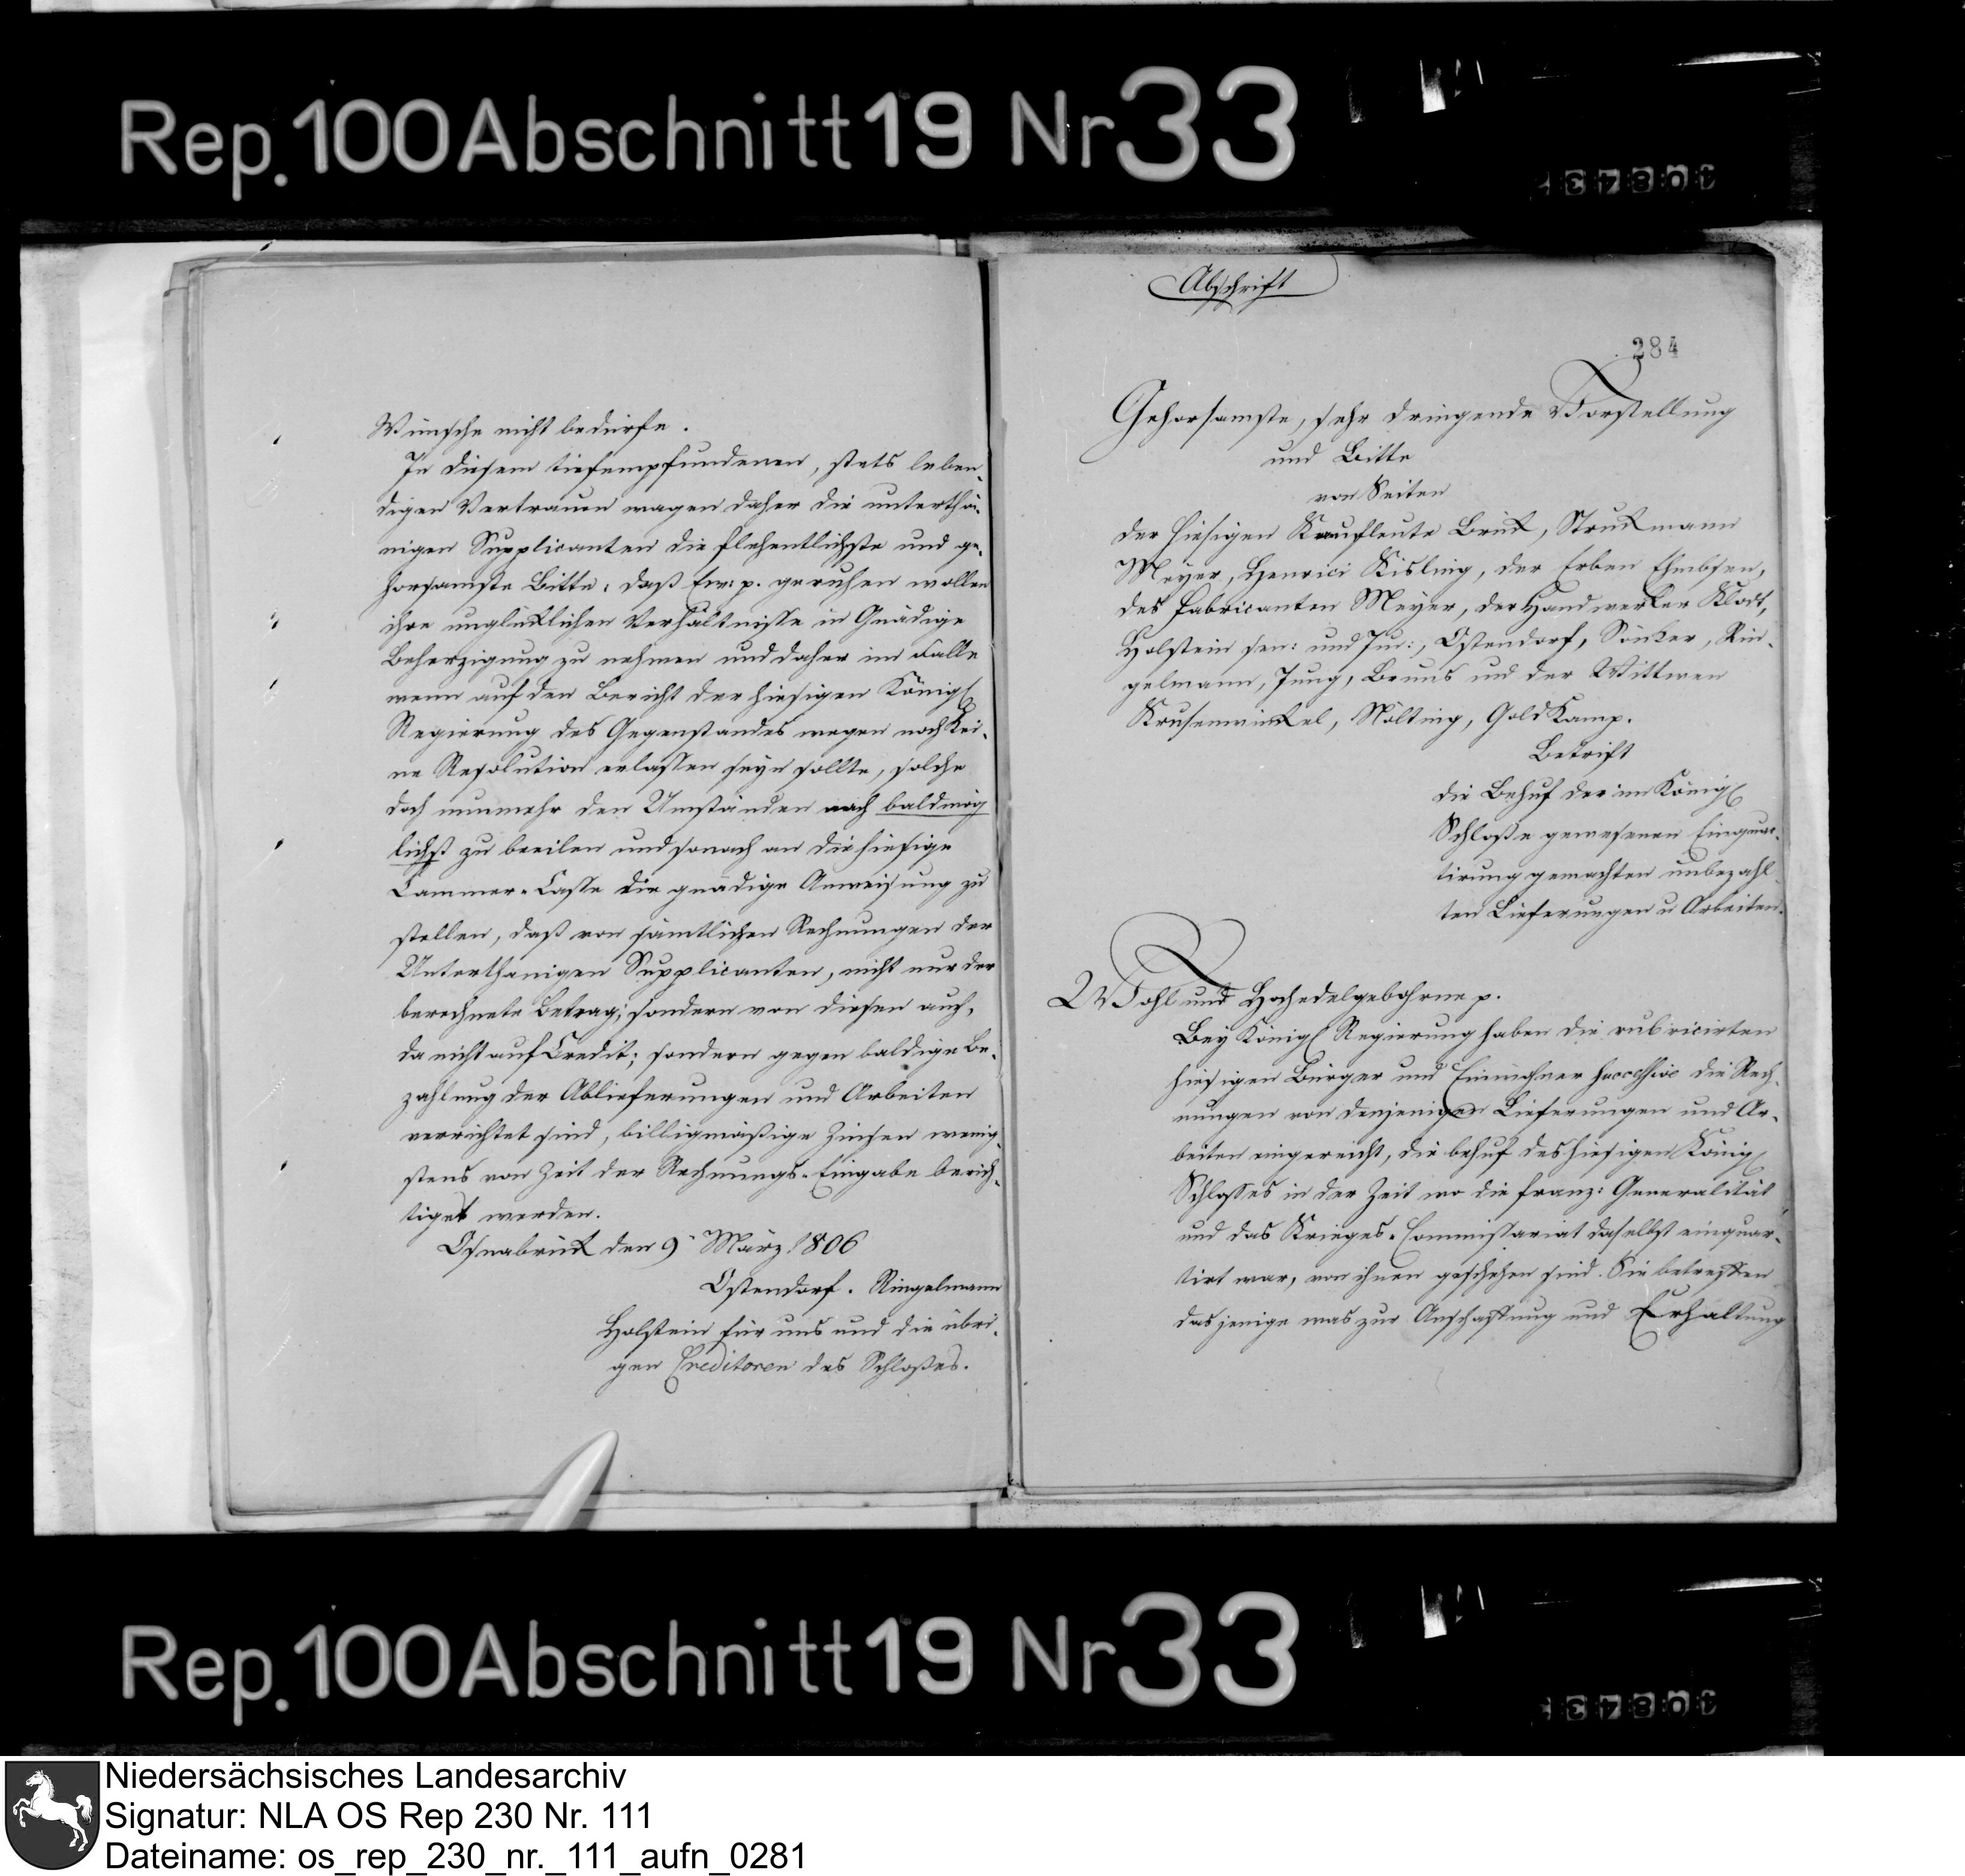 Rep. 100 Abschnitt 19 Nr 33
Wünsche nicht bedürfe.
In diesem tiefempfundenen, stets leben-
digen Vertrauen wagen daher die unterthä-
nigen Supplicanten die flehentlichste und ge-
horsamste Bitte: daß Ew: p. geruhen wollen
ihre unglüklichen Verhältnisse in Gnädige
Beherzigung zu nehmen und daher im Falle
wenn auf den Bericht der hiesigen Königl
Regierung des Gegenstandes wegen noch kei-
ne Resolution erlassen seyn sollte, solche
doch nunmehr den Umständen nach baldmög
lichst zu beeilen und sonach an die hiesige
Cammer-Casse die gnädige Anweisung zu
stellen, daß von sämtlichen Rechnungen der
Unterthanigen Supplicanten, nicht nur der
berechnete Betrag; sondern von diesen auch,
da nicht auf Credit; sondern gegen baldige Be-
zahlung der Ablieferungen und Arbeiten
verrichtet sind, billigmäßige Zinsen wenig-
stens von Zeit der Rechnungs-Eingabe berich-
tiget werden.
Osnabrük den 9 März 1806
Ostendorf. Ringelmann
Holstein für uns und die übri-
gen Creditoren des Schloßes.
Abschrift
284
Gehorsamste, sehr dringende Vorstellung
und Bitte
von Seiten
der hiesigen Kaufleute Brük, Strukmann
Meyer, Henrici Kisling, der Erben Ehmbsen,
des Fabricanten Meyer, der Handwerker Klodt,
Holstein sen: und Jun:, Ostendorf, Rin-
gelmann, Jung, Bruns und der Wittwen
Krusenwinkel, Nölting, Goldkamp.
Betrift
die Behuf der im Königl
Schloße gewesenen Einquar-
tirung gemachten unbezahl
ten Lieferungen u Arbeiten.
Wohl und Hochedelgebohrne p.
Bey Königl Regierung haben die rubricirten
hiesigen Bürger und Einwohner successive die Rech-
nungen von denjenigen Lieferungen und Ar-
beiten eingereicht, die behuf des hiesigen Königl
Schlosses in der Zeit wo die franz: Generalität
und das Krieges-Commissariat daselbst einquar-
tirt war, von ihnen geschehen sind. Sie betreffen
dasjenige was zur Anschaffung und Erhaltung
Rep. 100 Abschnitt 19 Nr 33
Niedersächsisches Landesarchiv
Signatur: NLA OS Rep 230 Nr. 111
Dateiname: os_rep_230_nr._111_aufn_0281